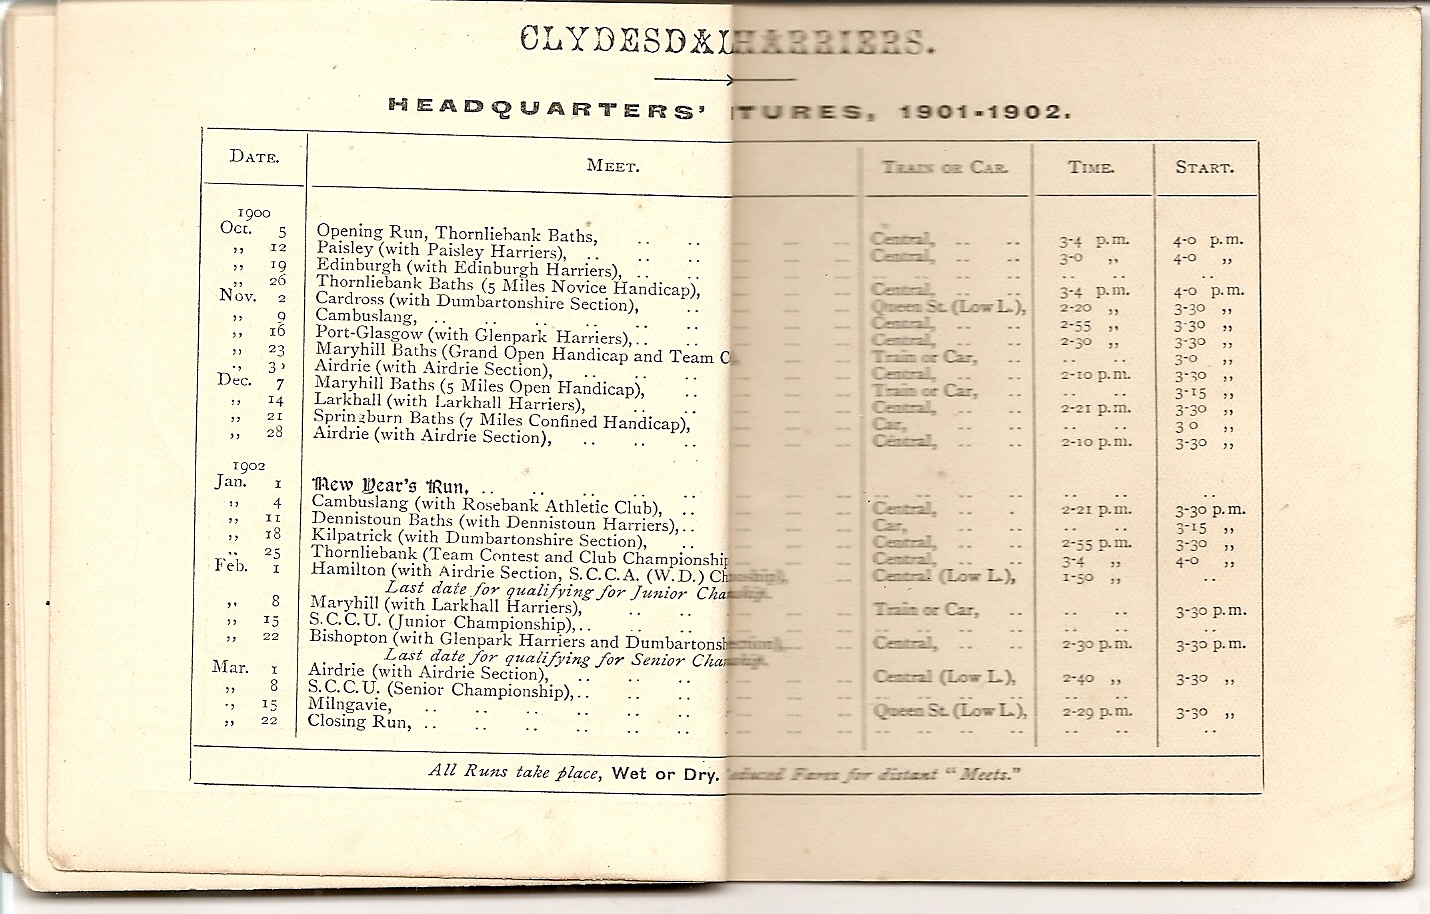 CLYDESDAL HARRIERS.
HEADQUARTERS' TURES, 1901-1902.
DATE. MEET. TRAIN OR CAR. TIME. START.
1900
Oct. 5 Opening Run, Thornliebank Baths, .. .. .. .. .. Central, .. .. 3-4 p.m. 4-0 p.m.
,, 12 Paisley (with Paisley Harriers), .. .. .. .. .. .. Central, .. .. 3-0 ,, 4-0 ,,
,, 19 Edinburgh (with Edinburgh Harriers), .. .. .. .. .. .. .. .. .. .. ..
,, 26 Thornliebank Baths (5 Miles Novice Handicap), .. .. .. Central, .. .. 3-4 p.m. 4-0 p.m.
Nov. 2 Cardross (with Dumbartonshire Section), .. .. .. .. Queen St. (Low L.), 2-20 ,, 3-30 ,,
,, 9 Cambuslang, .. .. .. .. .. .. .. .. .. Central, .. .. 2-55 ,, 3-30 ,,
,, 16 Port-Glasgow (with Glenpark Harriers), .. .. .. .. .. Central, .. .. 2-30 ,, 3-30 ,,
,, 23 Maryhill Baths (Grand Open Handicap and Team .. .. Train or Car, .. .. .. 3-0 ,,
., 3 Airdrie (with Airdrie Section), .. .. .. .. .. .. Central, .. .. 2-10 p.m. 3-30 ,,
Dec. 7 Maryhill Baths (5 Miles Open Handicap), .. .. .. .. Train or Car, .. .. .. 3-15 ,,
,, 14 Larkhall (with Larkhall Harriers), .. .. .. .. .. Central, .. .. 2-21 p.m. 3-30 ,,
,, 21 Springburn Baths (7 Miles Confined Handicap), .. .. .. Car, .. .. .. .. 3 0 ,,
,, 28 Airdrie (with Airdrie Section), .. .. .. .. .. .. Central, .. .. 2-10 p.m. 3-30 ,,
1902
Jan. 1 New Year's Run, .. .. .. .. .. .. .. .. .. .. .. ..
,, 4 Cambuslang (with Rosebank Athletic Club), .. .. .. .. Central, .. . 2-21 p.m. 3-30 p.m.
,, 11 Dennistoun Baths (with Dennistoun Harriers), .. .. .. .. Car, .. .. .. .. 3-15 ,,
,, 18 Kilpatrick (with Dumbartonshire Section), .. .. .. .. Central, .. .. 2-55 p.m. 3-30 ,,
,, 25 Thornliebank (Team Contest and Club Championship .. .. Central, .. .. 3-4 ,, 4-0 ,,
Feb. 1 Hamilton (with Airdrie Section, S.C.C.A. (W.D.) Ch .. Central (Low L.), 1-50 ,, ..
Last date for qualifying for Junior Cha
,, 8 Maryhill (with Larkhall Harriers), .. .. .. .. .. Train or Car, .. .. .. 3-30 p.m.
,, 15 S.C.C.U. (Junior Championship), .. .. .. .. .. .. .. .. .. .. ..
,, 22 Bishopton (with Glenpark Harriers and Dumbartons .. .. Central, .. .. 2-30 p.m. 3-30 p.m.
Last date for qualifying for Senior Cha
Mar. 1 Airdrie (with Airdrie Section), .. .. .. .. .. .. Central (Low L.), 2-40 ,, 3-30 ,,
,, 8 S.C.C.U. (Senior Championship), .. .. .. .. .. .. .. .. .. .. ..
., 15 Milngavie, .. .. .. .. .. .. .. .. .. Queen St. (Low L.), 2-29 p.m. 3-30 ,,
,, 22 Closing Run, .. .. .. .. .. .. .. .. .. .. .. .. .. ..
All Runs take place, Wet or Dry. educed Fares for distant "Meets."